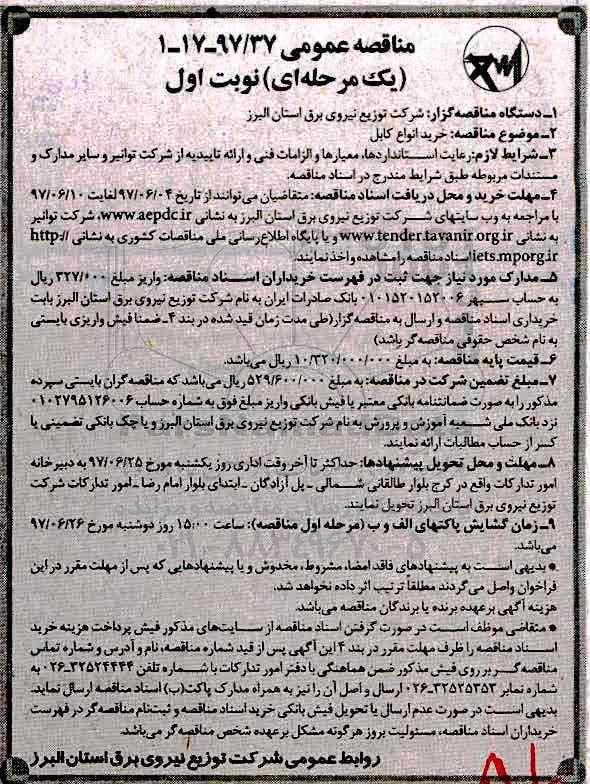 مناقصه عمومی ۹۷/۳۷-۱۷-۱
(یک مرحله‌ای) نوبت اول
۱ـ دستگاه مناقصه‌گزار: شرکت توزیع نیروی برق استان البرز
۲ـ موضوع مناقصه: خرید انواع کابل
۳ـ شرایط لازم: رعایت استانداردها، معیارها و الزامات فنی و ارائه تاییدیه از شرکت توانیر و سایر مدارک و
مستندات مربوطه طبق شرایط مندرج در اسناد مناقصه.
۴ـ مهلت خرید و محل دریافت اسناد مناقصه: متقاضیان می‌توانند از تاریخ ۹۷/۰۶/۰۴ لغایت ۹۷/۰۶/۱۰
با مراجعه به وب سایتهای شرکت توزیع نیروی برق استان البرز به نشانی www.aepdc.ir، شرکت توانیر
به نشانی www.tender.tavanir.org.ir و یا پایگاه اطلاع‌رسانی ملی مناقصات کشوری به نشانی http://
iets.mporg.ir اسناد مناقصه را مشاهده و اخذ نمایند.
۵ـ مدارک مورد نیاز جهت ثبت در فهرست خریداران اسناد مناقصه: واریز مبلغ ۳۲۷/۰۰۰ ریال
به حساب سپهر ۰۱۰۱۵۲۰۱۵۲۰۰۶ بانک صادرات ایران به نام شرکت توزیع نیروی برق استان البرز بابت
خریداری اسناد مناقصه و ارسال به مناقصه‌گزار (طی مدت زمان قید شده در بند ۴ـ ضمنا فیش واریزی بایستی
به نام شخص حقوقی مناقصه‌گر باشد)
۶ـ قیمت پایه مناقصه: به مبلغ ۱۰/۳۲۰/۰۰۰/۰۰۰ ریال می‌باشد.
۷ـ مبلغ تضمین شرکت در مناقصه: به مبلغ ۵۲۹/۶۰۰/۰۰۰ ریال می‌باشد که مناقصه‌گران بایستی سپرده
مذکور را به صورت ضمانتنامه بانکی معتبر یا فیش بانکی واریز مبلغ فوق به شماره حساب ۰۱۰۲۷۹۵۱۲۶۰۰۶
نزد بانک ملی شعبه آموزش و پرورش به نام شرکت توزیع نیروی برق استان البرز و یا چک بانکی تضمینی یا
کسر از حساب مطالبات ارائه نمایند.
۸ـ مهلت و محل تحویل پیشنهادها: حداکثر تا آخر وقت اداری روز یکشنبه مورخ ۹۷/۰۶/۲۵ به دبیرخانه
امور تدارکات واقع در کرج بلوار طالقانی شمالی ـ پل آزادگان ـ ابتدای بلوار امام رضا ـ امور تدارکات شرکت
توزیع نیروی برق استان البرز تحویل نمایند.
۹ـ زمان گشایش پاکتهای الف و ب (مرحله اول مناقصه): ساعت ۱۵:۰۰ روز دوشنبه مورخ ۹۷/۰۶/۲۶
می‌باشد.
* بدیهی است به پیشنهادهای فاقد امضا، مشروط، مخدوش و یا پیشنهادهایی که پس از مهلت مقرر در این
فراخوان واصل می‌گردند مطلقاً ترتیب اثر داده نخواهد شد.
هزینه آگهی برعهده برنده یا برندگان مناقصه می‌باشد.
* متقاضی موظف است در صورت گرفتن اسناد مناقصه از سایت‌های مذکور فیش پرداخت هزینه خرید
اسناد مناقصه را ظرف مهلت مقرر در بند ۴ این آگهی پس از قید شماره مناقصه، نام و آدرس و شماره تماس
مناقصه‌گر بر روی فیش مذکور ضمن هماهنگی با دفتر امور تدارکات با شماره تلفن ۳۲۵۲۴۴۴۴-۰۲۶ به
شماره نمابر ۳۲۵۲۵۳۵۳-۰۲۶ ارسال و اصل آن را نیز به همراه مدارک پاکت (ب) اسناد مناقصه ارسال نماید.
بدیهی است در صورت عدم ارسال یا تحویل فیش بانکی خرید اسناد مناقصه و ثبت‌نام مناقصه‌گر در فهرست
خریداران اسناد مناقصه، مسئولیت بروز هرگونه مشکل برعهده شخص مناقصه‌گر می‌باشد.
روابط عمومی شرکت توزیع نیروی برق استان البرز